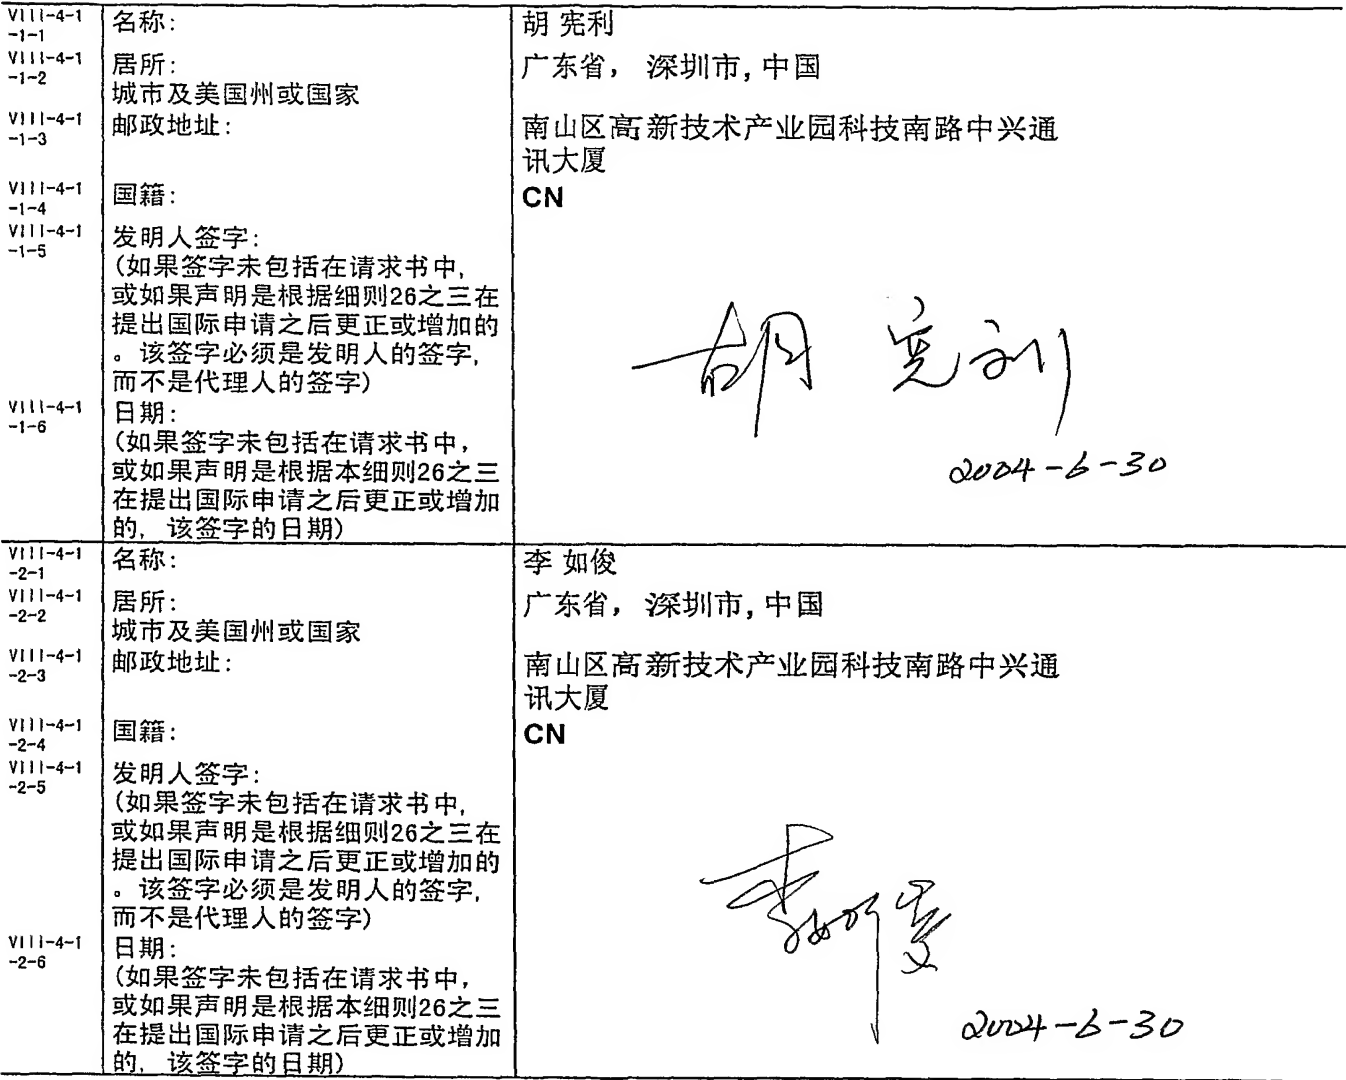 VIII-4-1
-1-1
名称:
胡 宪利
VIII-4-1
-1-2
居所:
城市及美国州或国家
广东省, 深圳市, 中国
VIII-4-1
-1-3
邮政地址:
南山区高新技术产业园科技南路中兴通
讯大厦
VIII-4-1
-1-4
国籍:
CN
VIII-4-1
-1-5
发明人签字:
(如果签字未包括在请求书中,
或如果声明是根据细则26之三在
提出国际申请之后更正或增加的
。该签字必须是发明人的签字,
而不是代理人的签字)
胡 宪利
VIII-4-1
-1-6
日期:
(如果签字未包括在请求书中,
或如果声明是根据本细则26之三
在提出国际申请之后更正或增加
的, 该签字的日期)
2004-6-30
VIII-4-1
-2-1
名称:
李 如俊
VIII-4-1
-2-2
居所:
城市及美国州或国家
广东省, 深圳市, 中国
VIII-4-1
-2-3
邮政地址:
南山区高新技术产业园科技南路中兴通
讯大厦
VIII-4-1
-2-4
国籍:
CN
VIII-4-1
-2-5
发明人签字:
(如果签字未包括在请求书中,
或如果声明是根据细则26之三在
提出国际申请之后更正或增加的
。该签字必须是发明人的签字,
而不是代理人的签字)
VIII-4-1
-2-6
日期:
(如果签字未包括在请求书中,
或如果声明是根据本细则26之三
在提出国际申请之后更正或增加
的, 该签字的日期)
2004-6-30